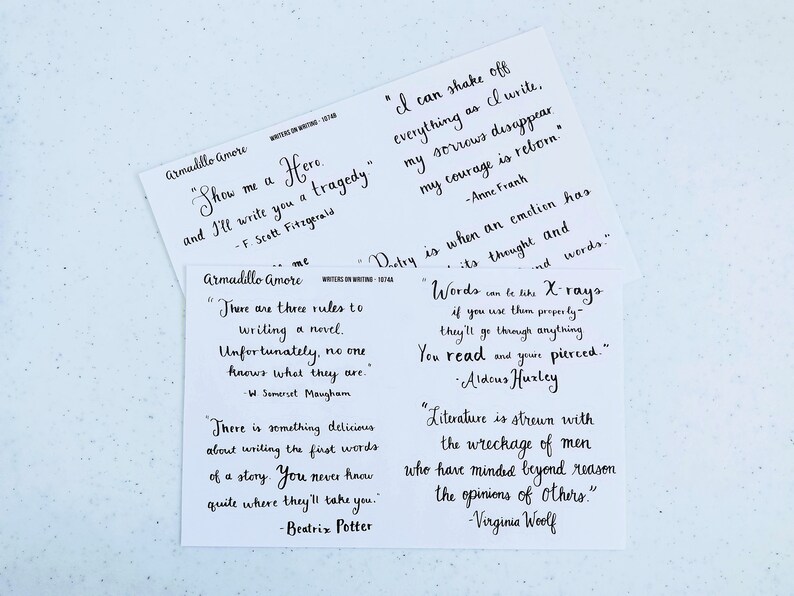 Armadillo Amore
WRITERS ON WRITING - 1074B
"Show me a Hero,
and I'll write you a tragedy."
- F. Scott Fitzgerald
"I can shake off
everything as I write,
my sorrows disappear,
my courage is reborn."
-Anne Frank
"Poetry is when an emotion has
its thought and
words."
me
Armadillo Amore
WRITERS ON WRITING - 1074A
"There are three rules to
writing a novel.
Unfortunately, no one
knows what they are."
-W. Somerset Maugham
"There is something delicious
about writing the first words
of a story. You never know
quite where they'll take you."
-Beatrix Potter
"Words can be like X-rays
if you use them properly-
they'll go through anything.
You read and you're pierced."
-Aldous Huxley
"Literature is strewn with
the wreckage of men
who have minded beyond reason
the opinions of others."
-Virginia Woolf